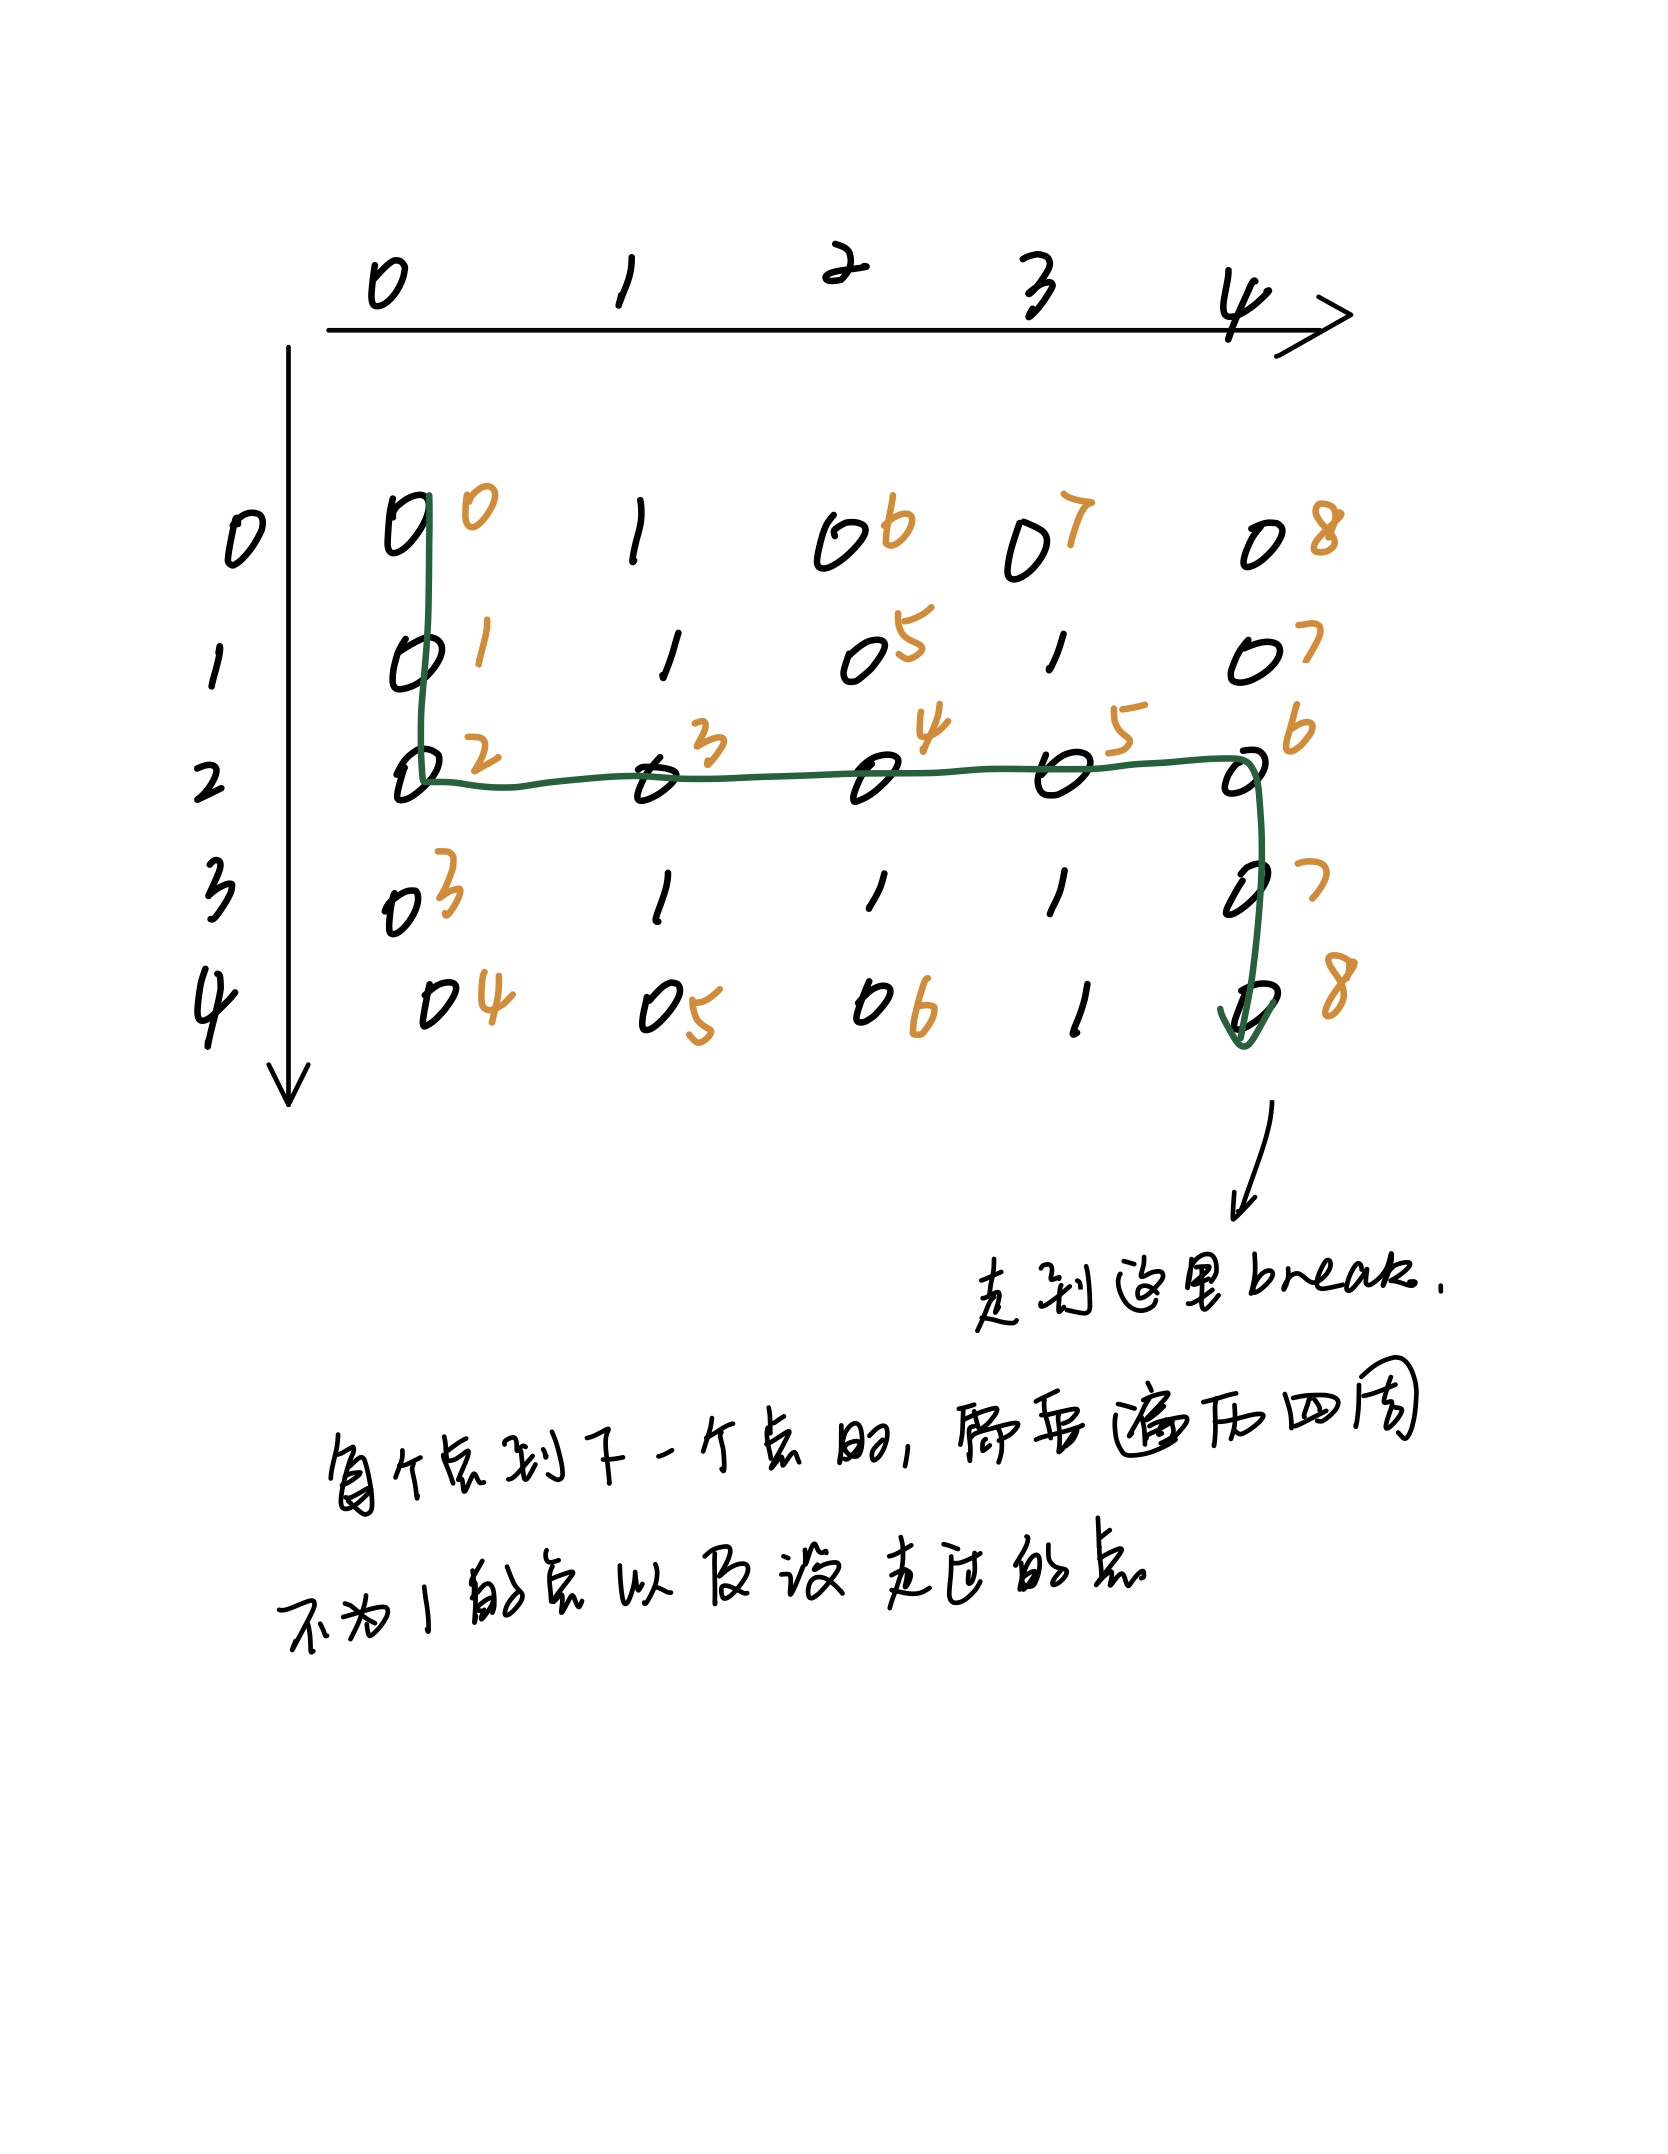 0 1 2 3 4
0 0 0 1 0 6 0 7 0 8
1 0 1 1 0 5 1 0 7
2 0 2 0 3 0 4 0 5 0 6
3 0 3 1 1 1 0 7
4 0 4 0 5 0 6 1 0 8
走到这里break.
每个点到下一个点时,需要遍历四周
不为1的点以及没走过的点